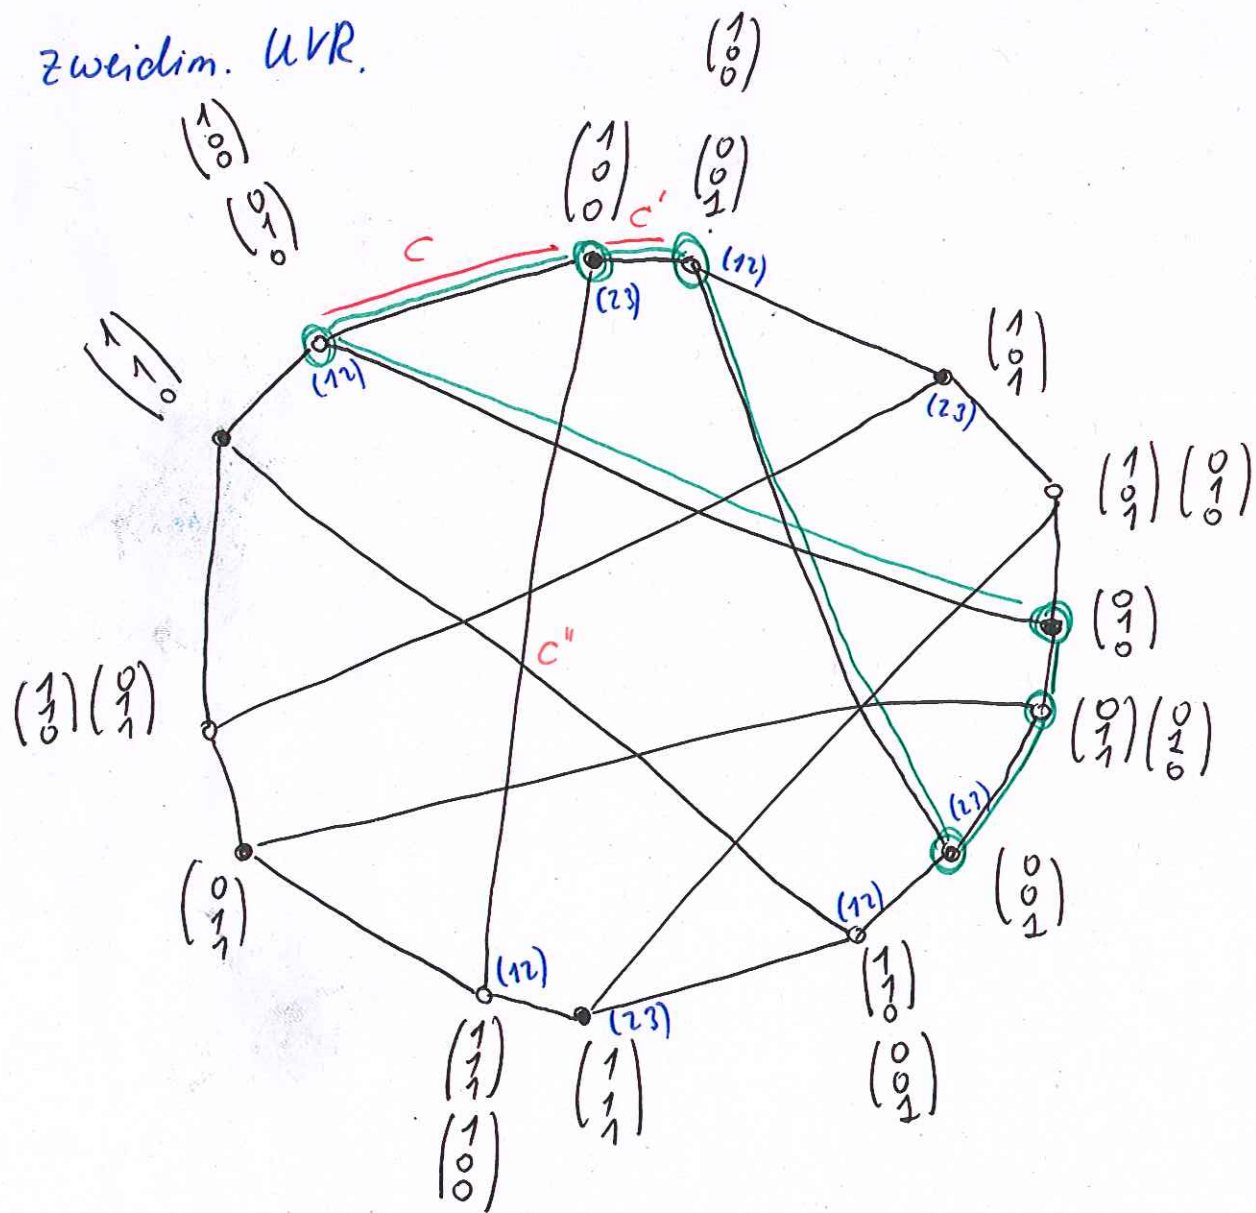 zweidim. UVR.
(1 0 0)
(1 0 0)
(0 1 0)
(1 0 0)
(0 0 1)
C
C'
(12)
(23)
(12)
(1 1 0)
(1 0 1)
(23)
(1 0 1) (0 1 0)
(0 1 0)
C"
(1 1 0) (0 1 1)
(0 1 1) (0 1 0)
(23)
(0 0 1)
(0 1 1)
(12)
(12)
(23)
(1 1 0)
(0 0 1)
(1 1 1)
(1 0 0)
(1 1 1)